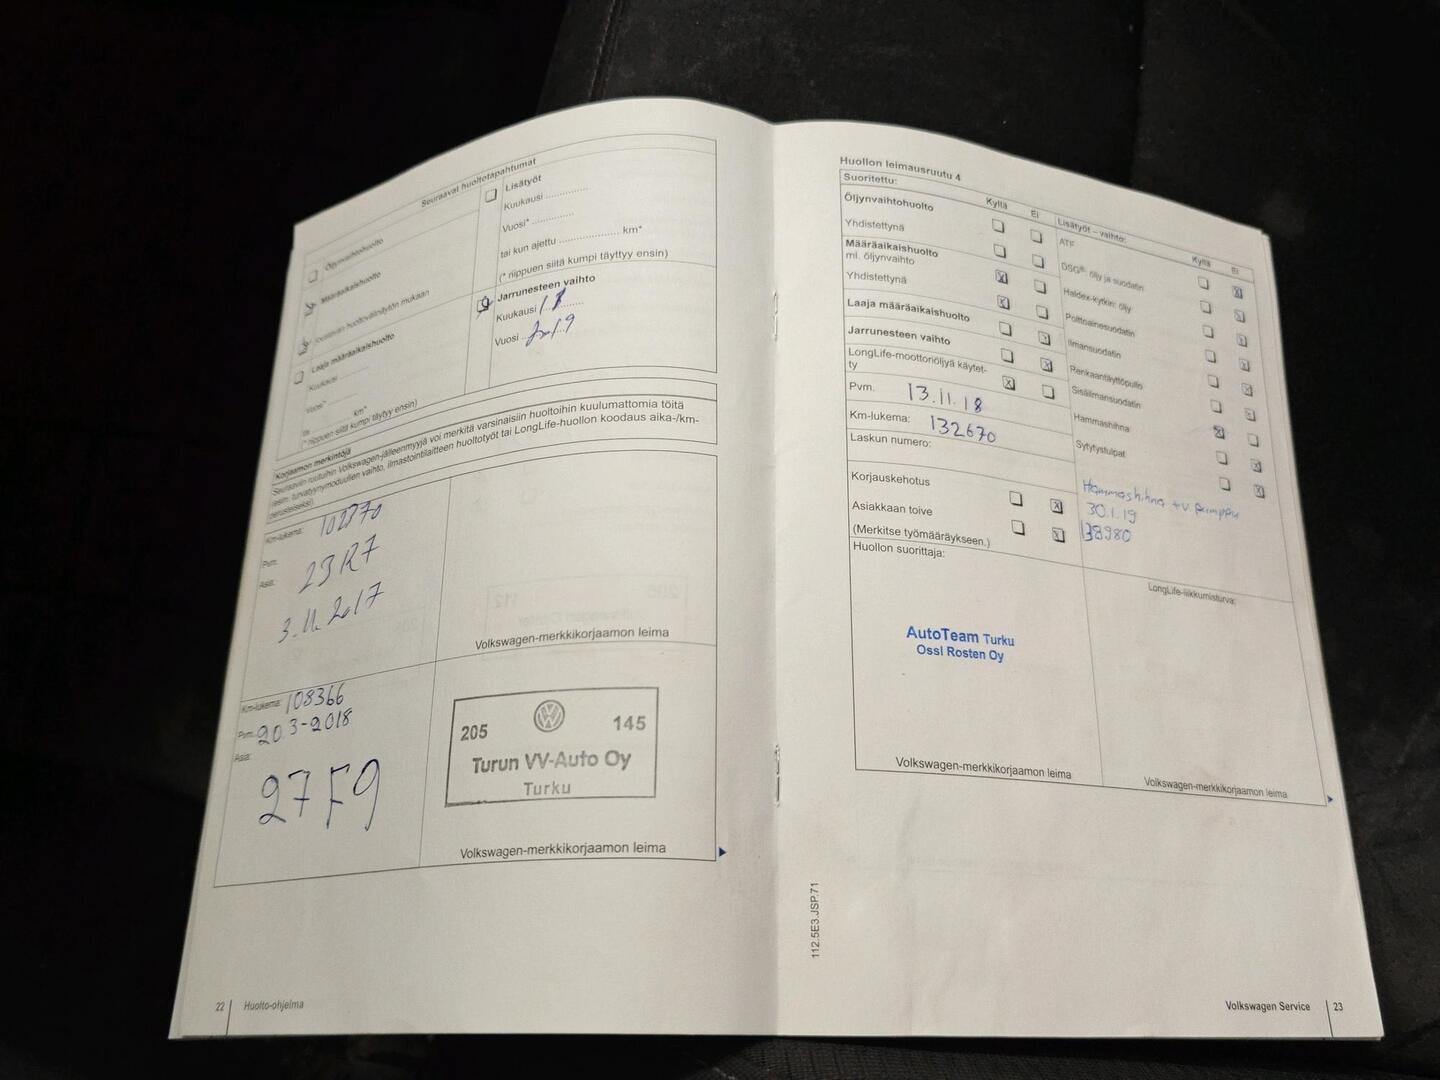 Seuraavat huoltotapahtumat
Öljynvaihtohuolto
Määräaikaishuolto
joustavan huoltovälinäytön mukaan
Laaja määräaikaishuolto
Kuukausi ..............
Vuosi* ..............
tai .............. km*
(* riippuen siitä kumpi täyttyy ensin)
Lisätyöt
Kuukausi ..............
Vuosi* ..............
tai kun ajettu .................... km*
(* riippuen siitä kumpi täyttyy ensin)
Jarrunesteen vaihto
Kuukausi
Vuosi 2019
Korjaamon merkintöjä
Seuraaviin ruutuihin Volkswagen-jälleenmyyjä voi merkitä varsinaisiin huoltoihin kuulumattomia töitä
(esim. turvatyynymoduulien vaihto, ilmastointilaitteen huoltotyöt tai LongLife-huollon koodaus aika-/km-
perusteiseksi).
Km-lukema: 102870
Pvm:
Asia: 23R7
3.11.2017
Volkswagen-merkkikorjaamon leima
Km-lukema: 108366
Pvm. 20.3-2018
Asia:
27F9
205 145
Turun VV-Auto Oy
Turku
Volkswagen-merkkikorjaamon leima
22 Huolto-ohjelma
Huollon leimausruutu 4
Suoritettu:
Kyllä Ei
Öljynvaihtohuolto
Yhdistettynä
Määräaikaishuolto
ml. öljynvaihto
Yhdistettynä
Laaja määräaikaishuolto
Jarrunesteen vaihto
LongLife-moottoriöljyä käytet-
ty
Pvm. 13.11.18
Km-lukema: 132670
Laskun numero:
Korjauskehotus
Asiakkaan toive
(Merkitse työmääräykseen.)
Huollon suorittaja:
AutoTeam Turku
Ossi Rosten Oy
Volkswagen-merkkikorjaamon leima
Lisätyöt – vaihto:
Kyllä Ei
ATF
DSG®: öljy ja suodatin
Haldex-kytkin: öljy
Polttoainesuodatin
Ilmansuodatin
Renkaantäyttöpullo
Sisäilmansuodatin
Hammashihna
Sytytystulpat
Hammashihna + v. pumppu
30.1.19
138980
LongLife-liikkumisturva:
Volkswagen-merkkikorjaamon leima
112.5E3.JSP.71
Volkswagen Service 23